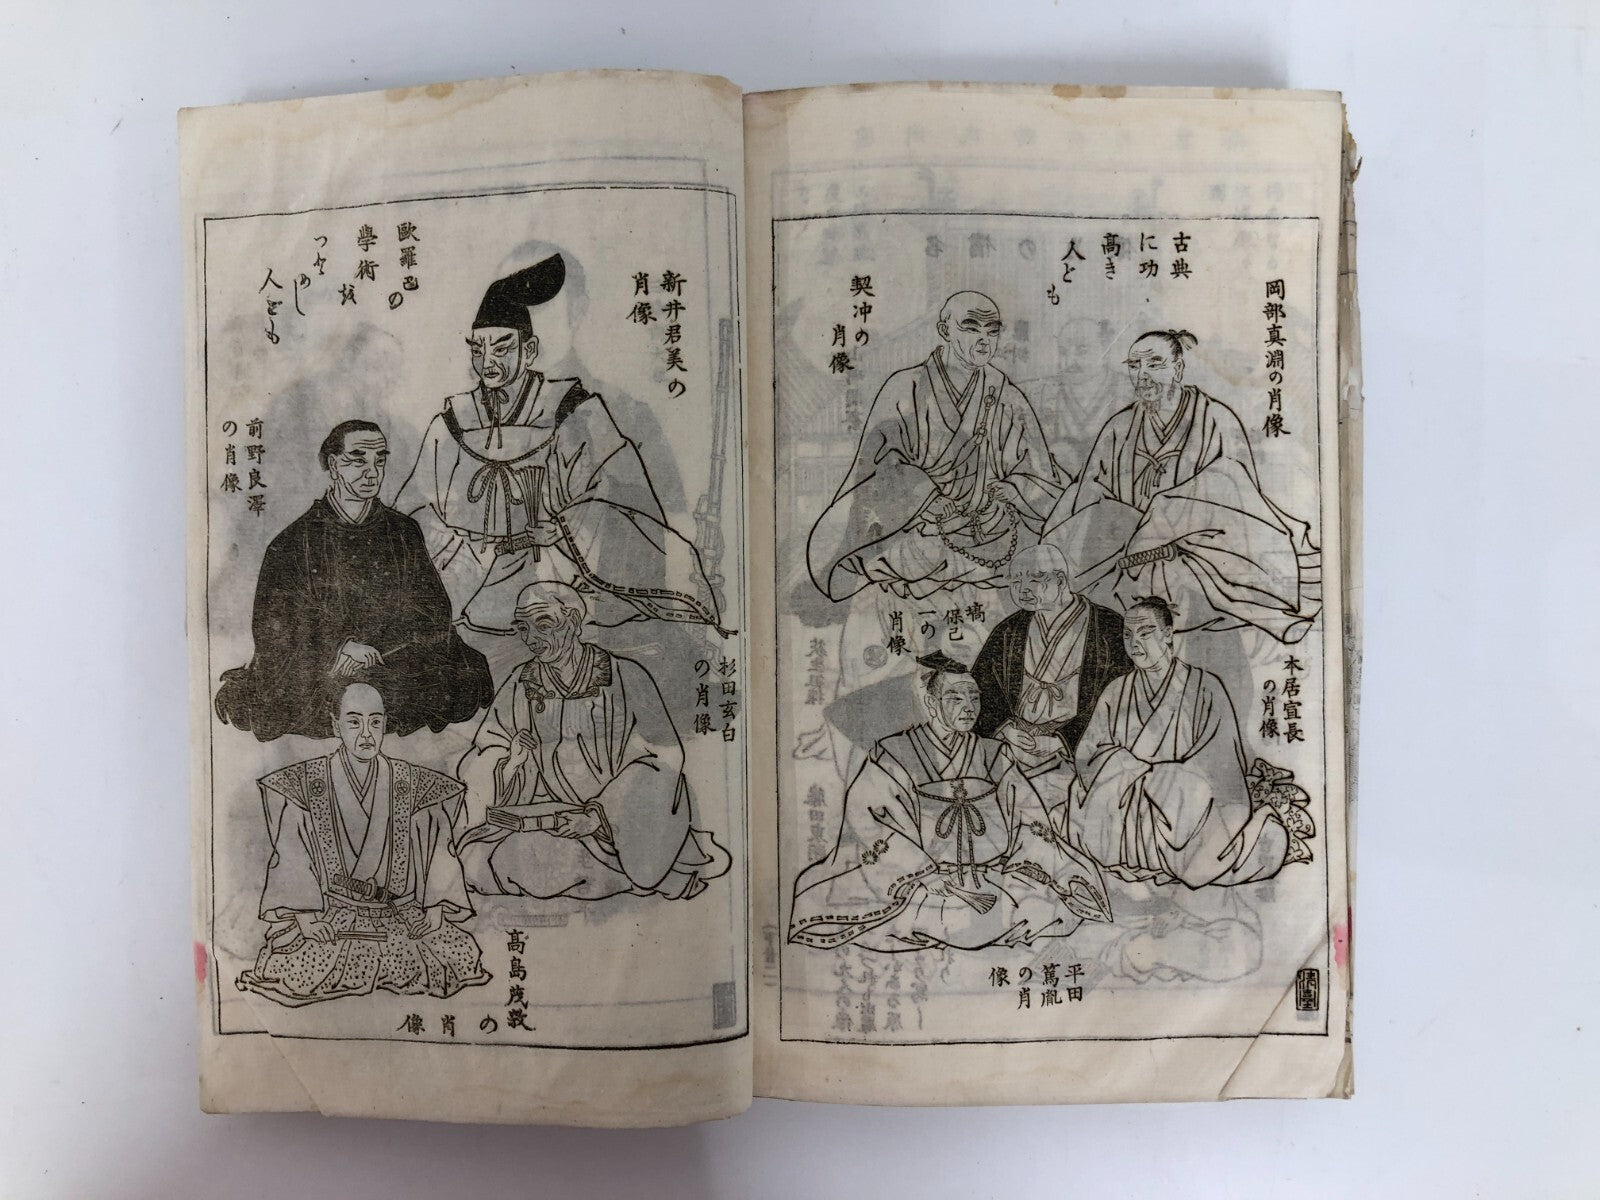 古典
に功
高き
人とも
岡部真淵の肖像
契冲の
肖像
塙
保己
一の
肖像
本居宣長
の肖像
平田
篤胤
の肖
像
歐羅巴の
學術
人とも
新井君美の
肖像
前野良澤
の肖像
杉田玄白
の肖像
高島茂敦
の肖像